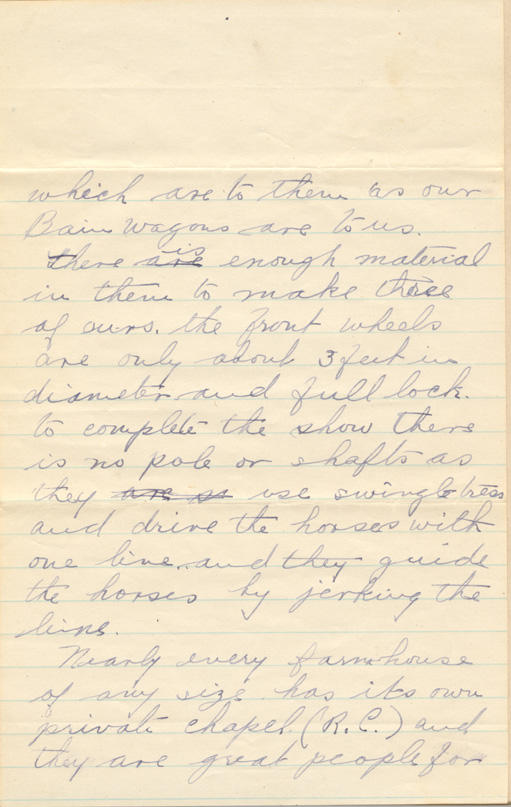 which are to them as our
Bain wagons are to us.
There are is enough material
in them to make three
of ours. the front wheels
are only about 3 feet in
diameter and full lock.
to complete the show there
is no pole or shafts as
they are so use swingletrees
and drive the horses with
one line. and they guide
the horses by jerking the
line.
Nearly every farmhouse
of any size has its own
private chapel. (R.C.) and
they are great people for